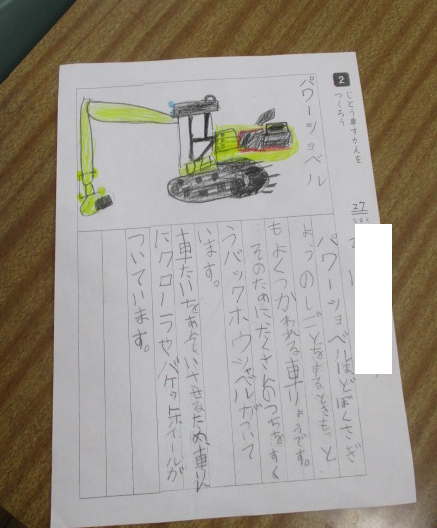 2
じどう車ずかんを
つくろう
27
パワーショベル
パワーショベルはどぼくさぎ
ょうのしごとをするときもっと
もよくつかわれる車りょうです。
そのためにたくさんのつちをすく
うバックホウショベルがついて
います。
車たいをあんていさせるため、車りん
にクローラやバケットホイールが
ついています。